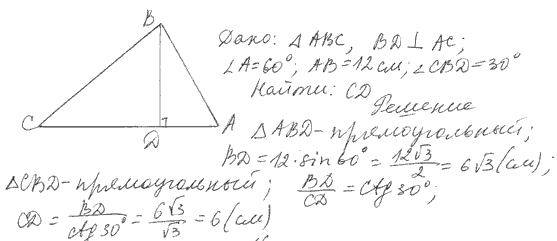 B
C
D
A
Дано: △ABC, BD⊥AC;
∠A=60°; AB=12см; ∠CBD=30°
Найти: CD
Решение
△ABD-прямоугольный;
BD=12·sin60°=12√3/2=6√3(см);
△CBD-прямоугольный; BD/CD=ctg30°;
CD=BD/ctg30°=6√3/√3=6(см)